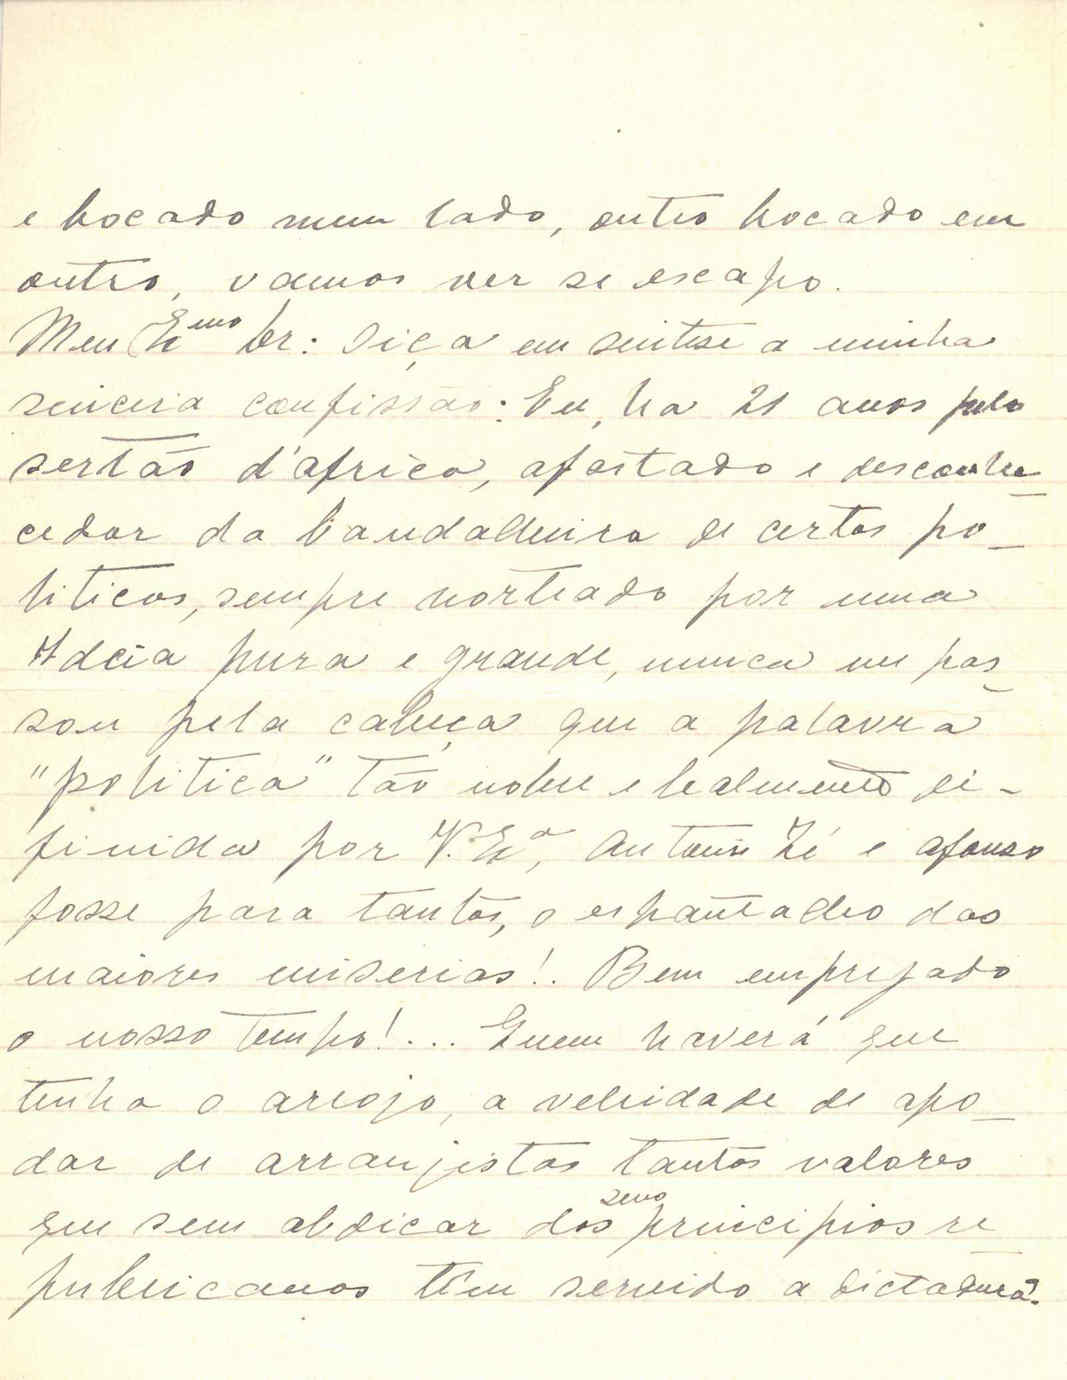 e bocado num lado, outro bocado em
outro, vamos ver se escapo.
Meu Exmo Dr: Oiça em sintese a minha
sincera confissão: Eu, ha 21 anos pelo
sertão d'africa, afastado e desconhe-
cedor da bandalheira de certos po-
liticos, sempre norteado por uma
Ideia pura e grande, nunca me pas
sou pela cabeça que a palavra
"politica" tão nobre e lealmente de-
finida por V. Exa, Antonio Zé e Afonso
fosse para tantos, o espantalho das
maiores miserias!. Bem empregado
o nosso tempo!... Quem haverá que
tenha o arrojo, a veleidade de apo-
dar de arranjistas tantos valores
que sem abdicar dos seus principios re
publicanos têm servido a dictadura.